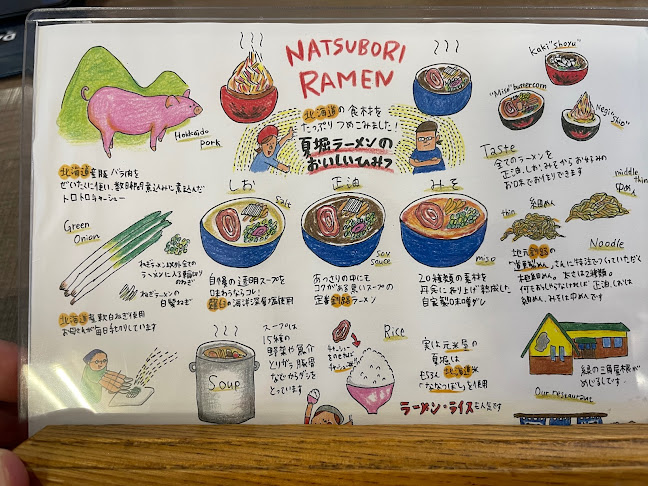 NATSUBORI
RAMEN
北海道の食材を
たっぷりつめこみました！
夏堀ラーメンの
おいしいひみつ
Hokkaido
pork
北海道産豚バラ肉を
ぜいたくに使い、数時間煮込みに煮込んだ
トロトロチャーシュー
Kaki "shoyu"
"Miso" butter corn
"Negi shio"
Taste
全てのラーメンを
正油、しお、みそからお好みの
お味でお作りできます
Green
Onion
ねぎラーメン以外全ての
ラーメンに入る輪切りのねぎ
ねぎラーメンの
白髪ねぎ
北海道産軟白ねぎ使用
お母さんが毎日手切りしています
しお
Salt
自慢の透明スープを
味わうならコレ！
の海洋深層塩使用
正油
Soy
sauce
あっさりの中にも
コクがある黒いスープの
定番釧路ラーメン
みそ
miso
20種類の素材を
共に練り上げ熟成した
自家製味噌ダレ
thin
細めん
middle
thin
中めん
Noodle
地元釧路の
さんに特注でつくっていただく
太さは2種類。
何もおっしゃらなければ 正油、しおは
細めん、みそは中めんです
Soup
スープは
15種の
野菜や魚介
とりガラ、豚骨
などからダシを
とっています
Rice
実は元米屋の
夏堀は
もちろん北海道米
「ななつぼし」を使用
ラーメン・ライスも人気です
緑の三角屋根が
めじるしです
Our restaurant